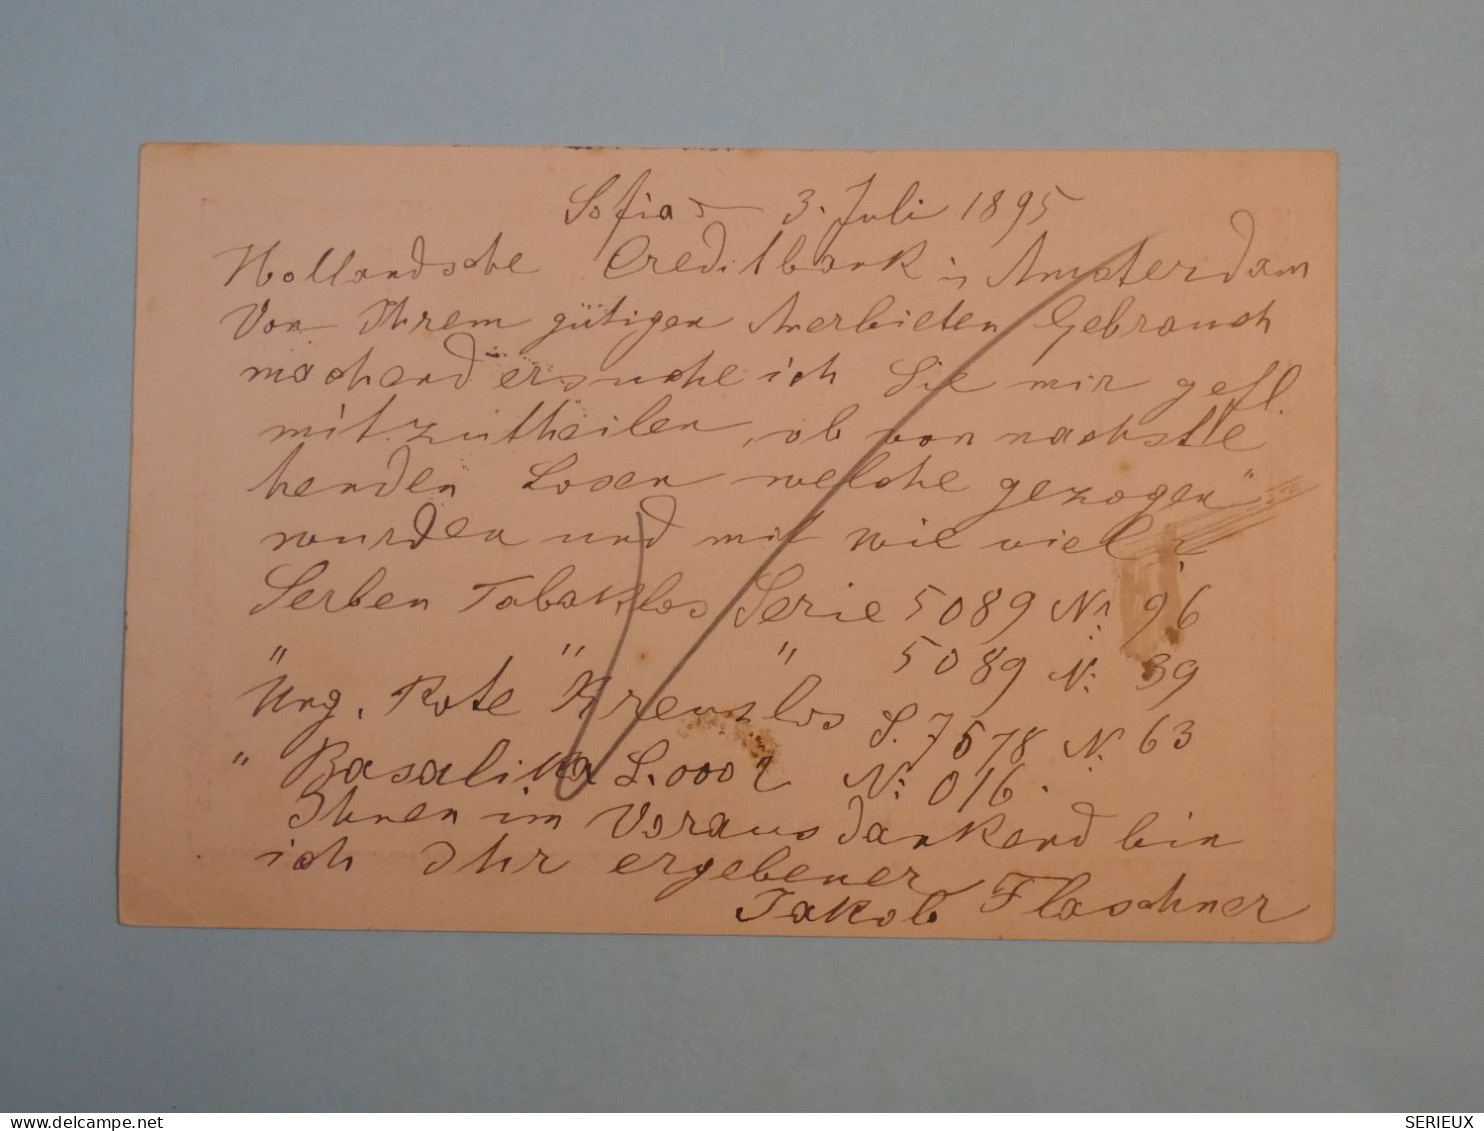 Sofia 3. Juli 1895
Hollandsche Creditbank in Amsterdam
Von Ihrem gütigen Anerbieten Gebrauch
machend ersuche ich Sie mir gefl.
mitzutheilen, ob von nachste
henden Losen welche gezogen
wurden und mit wie viel?
Serben Tabaklos Serie 5089 Nr. 96
" " " 5089 N. 39
Ung. Rote Kreuzlos S. 7578 N. 63
" Basalika S. 0002 N: 016.
Ihnen im Voraus dankend bin
ich Ihr ergebener
Jakob Flaschner
SERIEUX